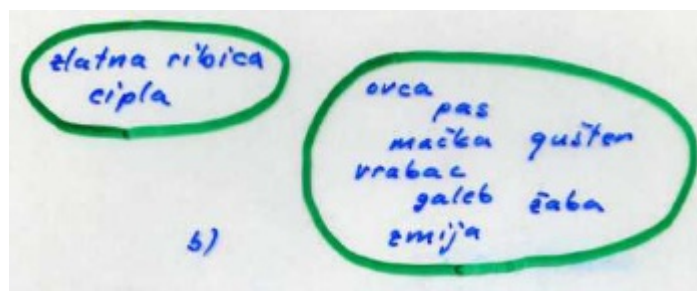 zlatna ribica
cipla
ovca
pas
mačka gušter
vrabac
galeb žaba
zmija
b)